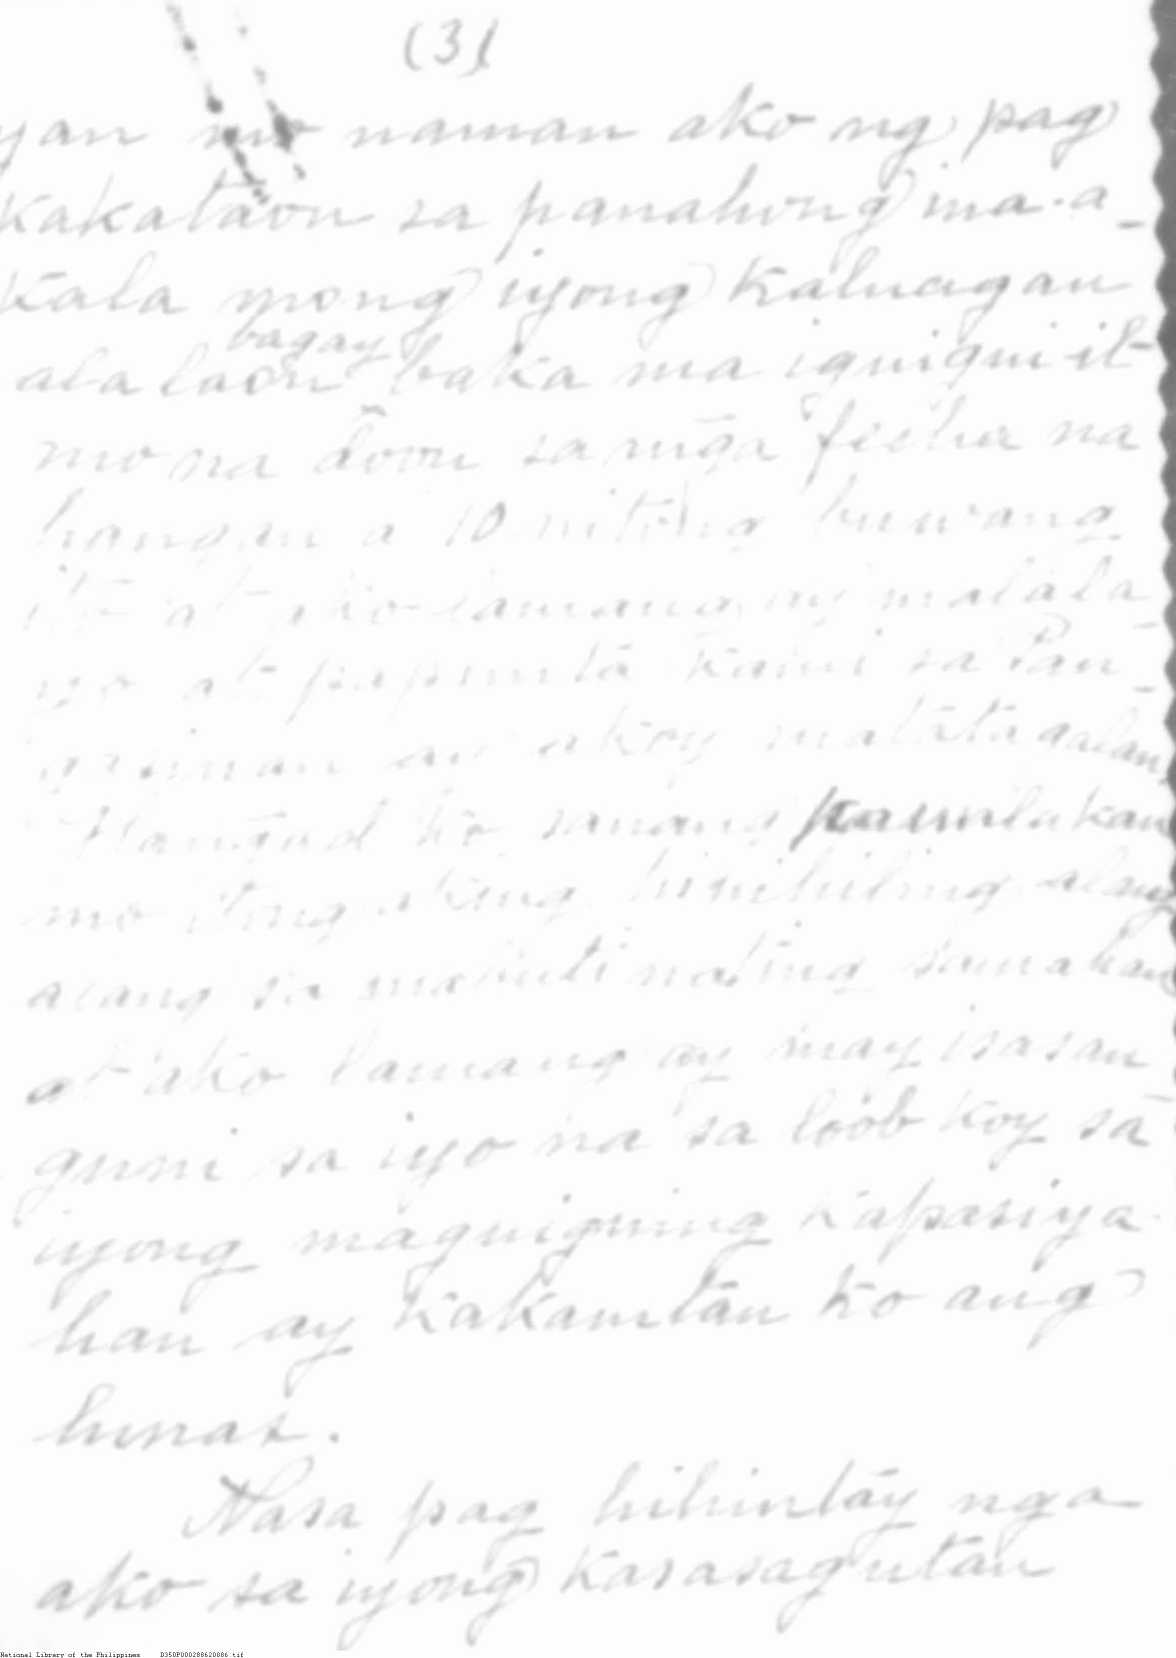 (3)
yan mo naman ako ng pag
kakataon sa panahong ma-a-
kala mong iyong kaluagan
bagay
alalaon baka ma iguiguiit
mo na doon sa mga fecha na
hangan a 10 nitong buwang
ito at ako lamang ay malala
yo at papunta kami sa Pan-
gasinan at akoy matatagalan
Hangad ko sanang
mo itong aking hinihiling alang
alang sa mabuti nating samahan
at ako lamang ay may isasan
guni sa iyo na sa loob koy sa
iyong maguiguing kapasiya-
han ay kakamtan ko ang
lunas.
Nasa pag hihintay nga
ako sa iyong kasasagutan
National Library of the Philippines D350P000288620086.tif